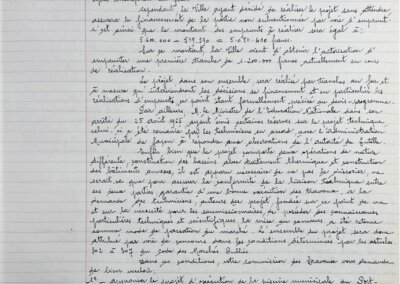 cependant la Ville ayant décidé de réaliser le projet sans attendre
assurera le financement de la partie non subventionnée par voie d'emprunt
c'est ainsi que le montant des emprunts à réaliser sera égal à :
francs.
Sur ce montant, la Ville vient d'obtenir l'autorisation d'
emprunter une première tranche de 1.200.000 francs actuellement en cours
de réalisation.
Le projet dans son ensemble sera réalisé par tranches au fur et
à mesure qu'interviendront les décisions de financement et en particulier les
réalisations d'emprunts au point étant formellement précisé au devis-programme.
Par ailleurs M. le Ministre de l'Education Nationale dans son
arrêté du 25 août 1966 ayant émis certaines réserves sur le projet technique
celui-ci a été remanié par les techniciens en accord avec l'Administration
Municipale de façon à répondre aux observations de l'autorité de tutelle.
Enfin, bien que le projet comporte deux opérations de nature
différente, construction des bassins avec traitement thermique et construction
des bâtiments annexes, il est apparu nécessaire de ne pas le dissocier, ne
serait-ce que pour assurer la conformité de la liaison technique entre
ces deux parties garantie d'une bonne exécution des travaux, à la
demande des techniciens, auteurs du projet fondés sur ce point de vue
et sur la nécessité pour les soumissionnaires de posséder des connaissances
particulières techniques et scientifiques, la mise au concours a été retenue
comme mode de passation du marché. L'ensemble du projet sera donc
attribué par voie de concours dans les conditions déterminées par les articles
302 à 307 du code des Marchés Publics.
Dans ces conditions, votre commission des Travaux vous demande
de bien vouloir :
1° - approuver le projet d'exécution de la piscine municipale du